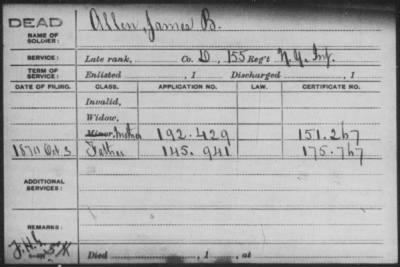 DEAD
NAME OF SOLDIER: Allen, James B.
SERVICE: Late rank, Co. D, 155 Reg't N.Y. Inf.
TERM OF SERVICE: Enlisted , 1 Discharged , 1
DATE OF FILING. CLASS. APPLICATION NO. LAW. CERTIFICATE NO.
Invalid,
Widow,
Minor, Mother 192.429 151.267
1870 Oct 3 Father 145.941 175.767
ADDITIONAL SERVICES:
REMARKS:
Died , 1 , at